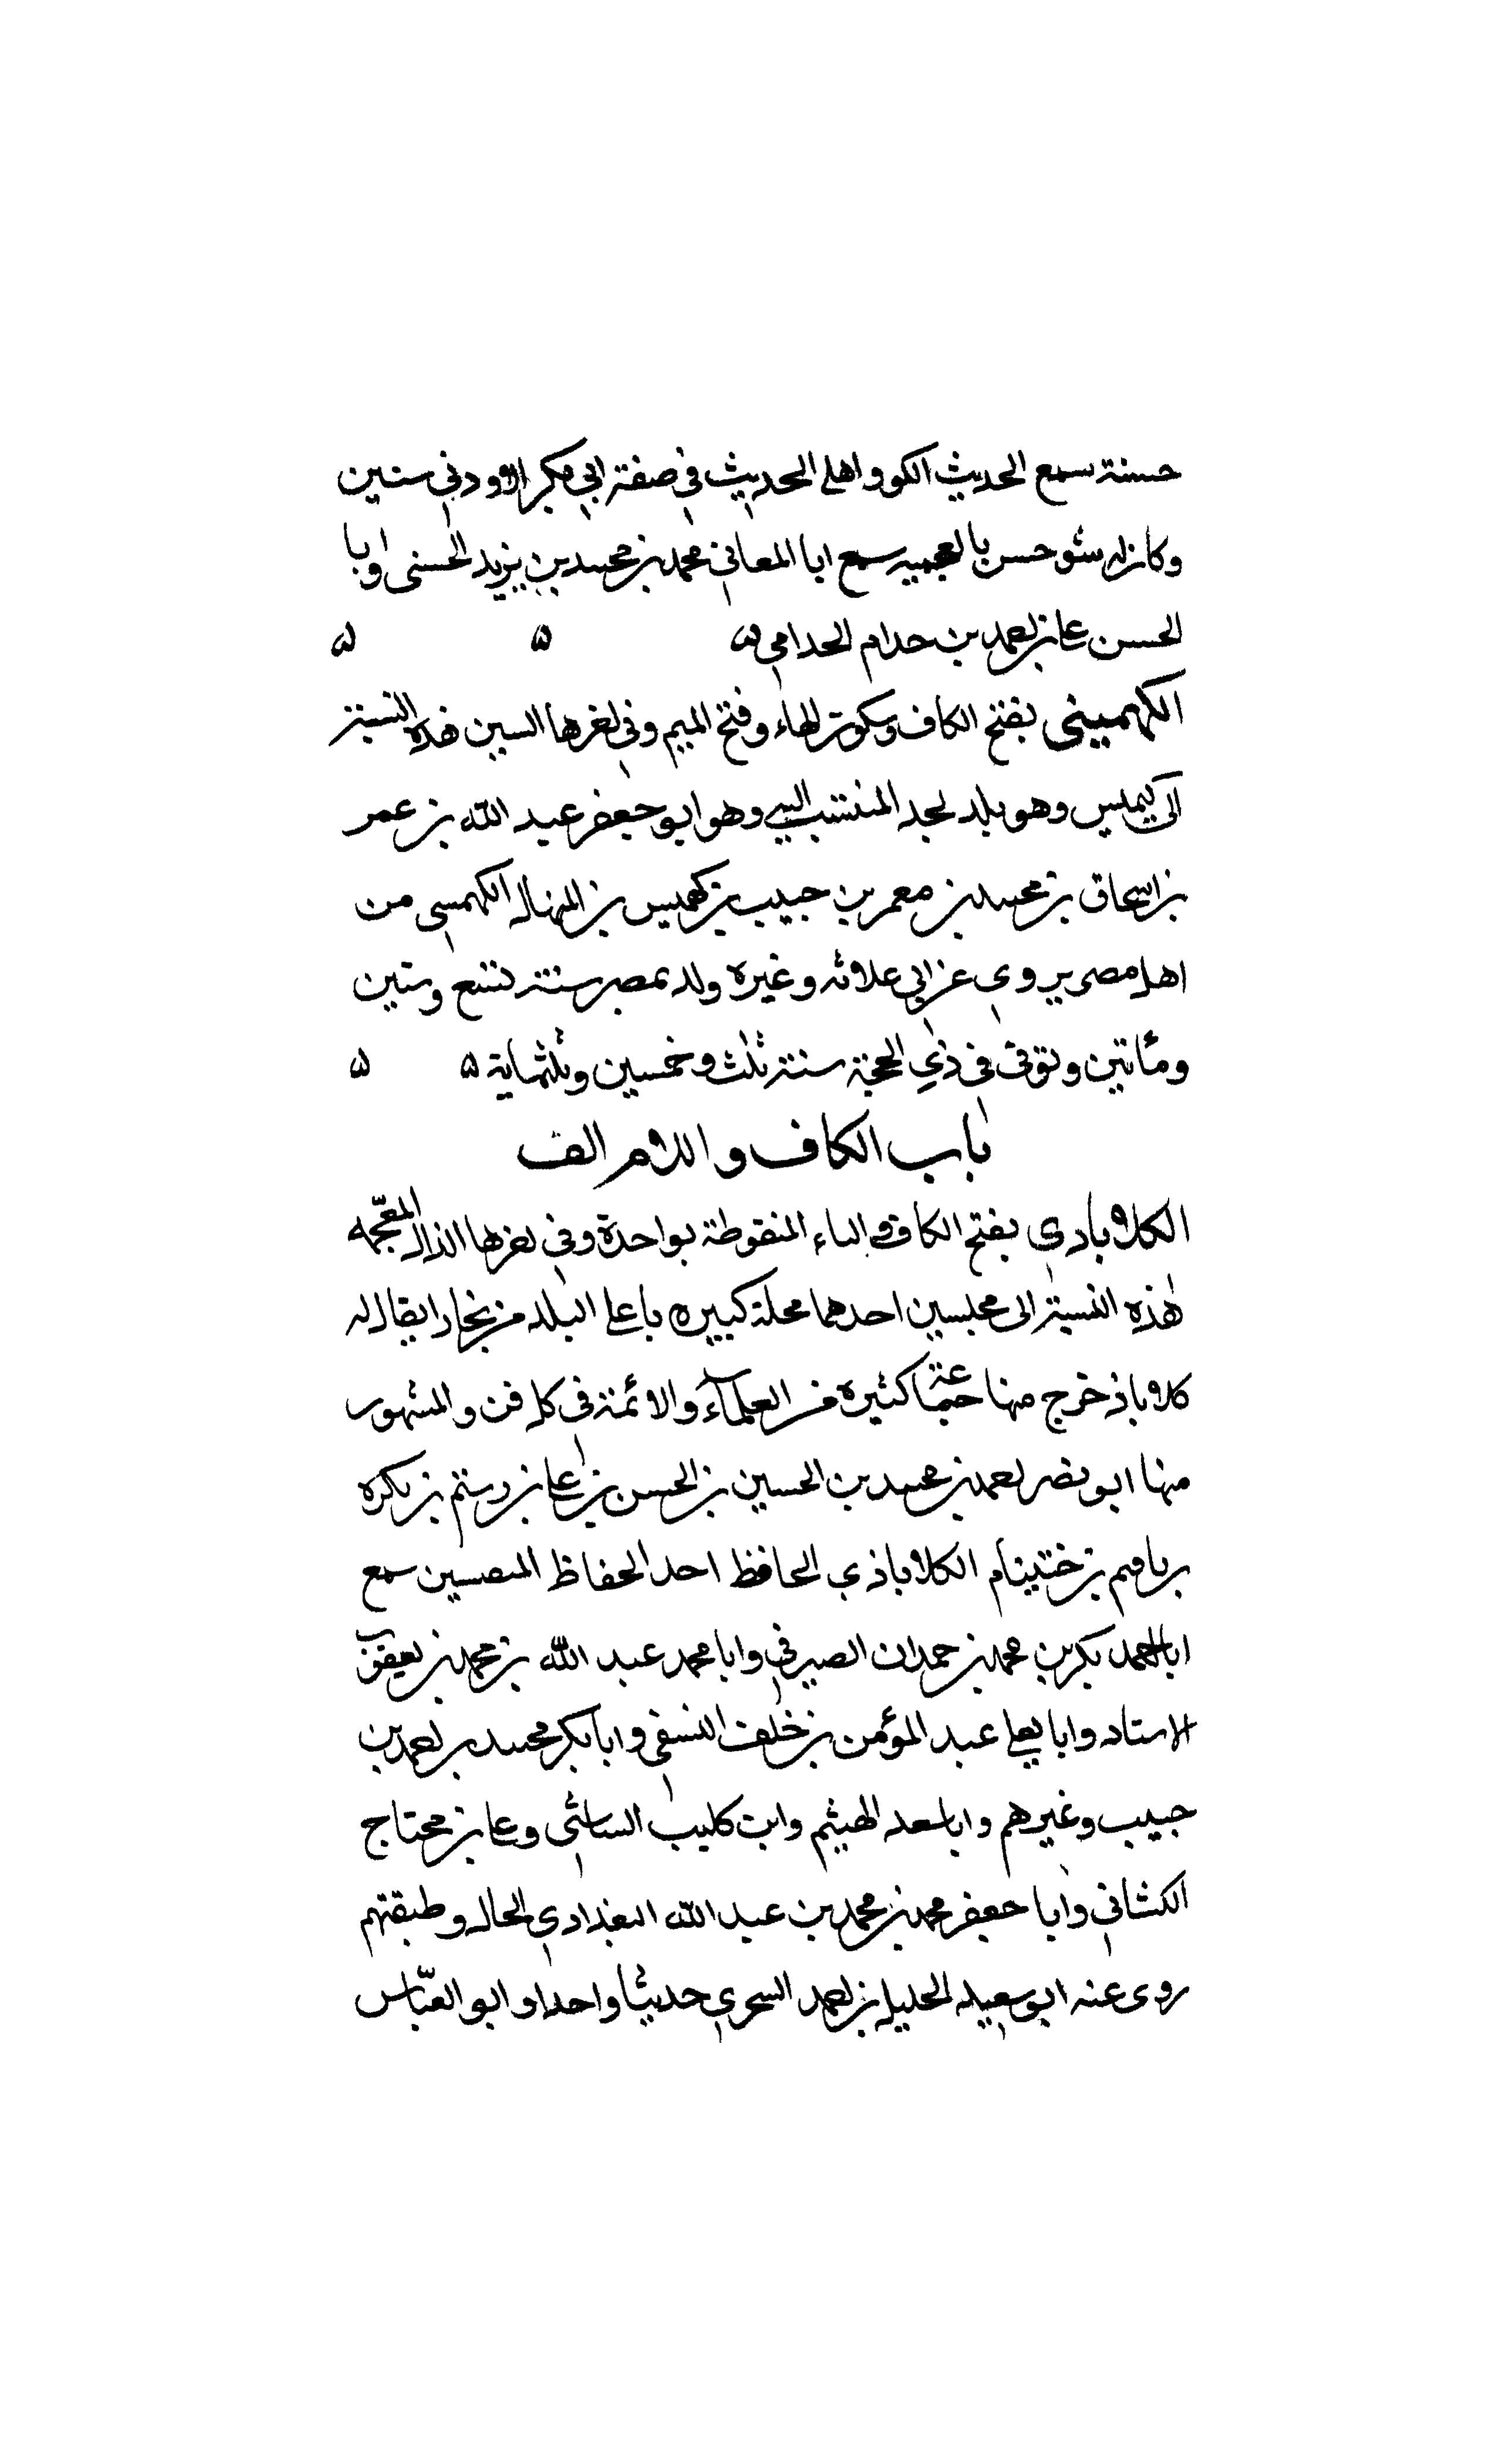 حسنة سمع الحديث الكو واهل الحديث في صفة ابي بكر الاودني سنين
وكان له سو حسن بالعجمية سمع ابا المعاني محمد بن محمد بن يزيد الحسني وابا
الحسن علي بن احمد بن حدام الحدامي
الكهمسي بفتح الكاف وسكون الهاء وفتح الميم وفي اخرها السين هذه النسبة
الى كهمس وهو بلد لجد المنتسب اليه وهو ابو جعفر عبد الله بن عمر
بن اسحاق بن محمد بن معمر بن حبيب بن كهمس بن المنهال الكهمسي من
اهل مصر يروي عن ابي علاثه وغيره ولد بمصر سنة تسع وستين
ومأتين وتوفى في ذي الحجة سنة ثلث وخمسين وثلثماية
باب الكاف واللام الف
الكلاباذي بفتح الكاف والباء المنقوطة بواحدة وفي اخرها الذال المعجمه
هذه النسبة الى محلتين احدهما محلة كبيره باعلى البلد من بخارا يقال له
كلاباذ خرج منها جماعة كثيره من العلمآء والائمة في كل فن والمشهور
منها ابو نصر احمد بن محمد بن الحسين بن الحسن بن علي بن رستم بن بكره
برباوهم بن ختينام الكلاباذي الحافظ احد الحفاظ المتصسين سمع
ابا احمد بكر بن محمد بن حمدان الصيرفي وابا محمد عبد الله بن محمد بن يعقوب
الاستاد وابا يعلى عبد المؤمن بن خلف النسفي وابا بكر محمد بن احمد بن
حبيب وغيرهم وابا سعد الهيثم وابن كليب الساشي وعلي بن محتاج
الكشاني وابا جعفر محمد بن محمد بن عبد الله البغدادي الحال وطبقتهم
روى عنه ابو سعيد الخليل بن احمد السحري حديثا واحدا وابو العبّاس